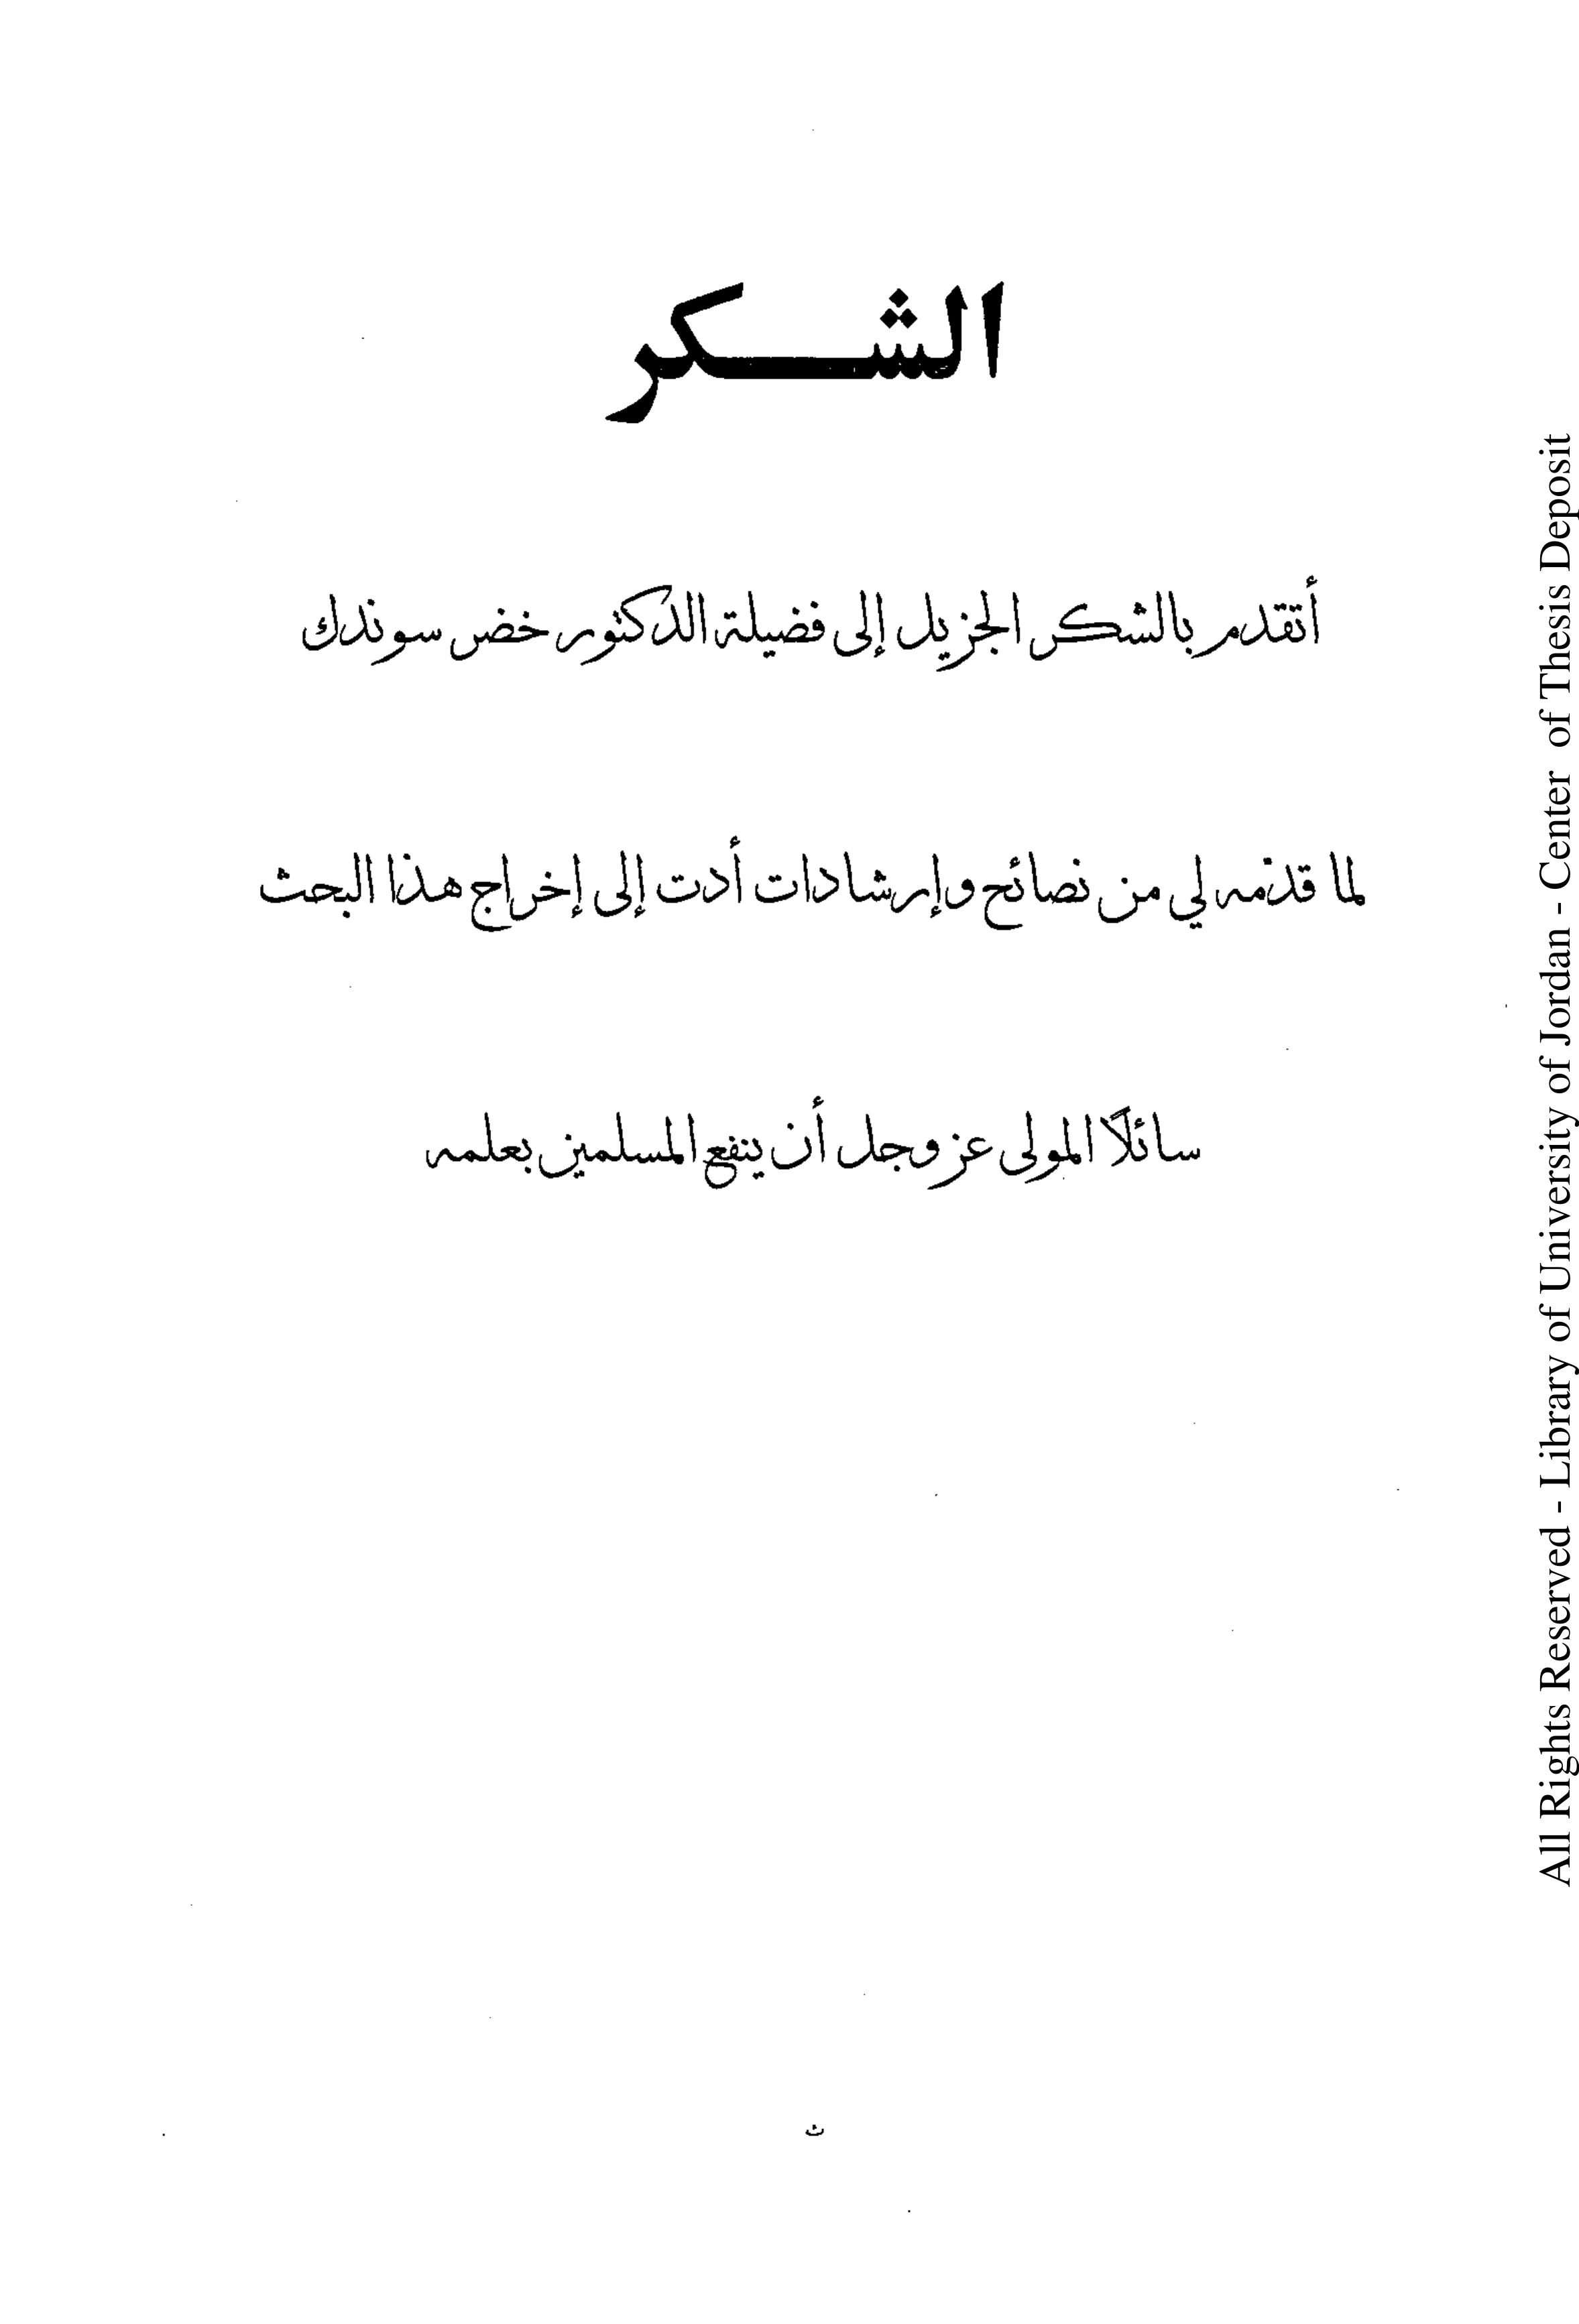 الشـــكر
أتقدم بالشكر الجزيل إلى فضيلة الدكتور خضر سوندك
لما قدّمه لي من نصائح وإرشادات أدت إلى إخراج هذا البحث
سائلاً المولى عز وجل أن ينفع المسلمين بعلمه
ث
All Rights Reserved - Library of University of Jordan - Center of Thesis Deposit